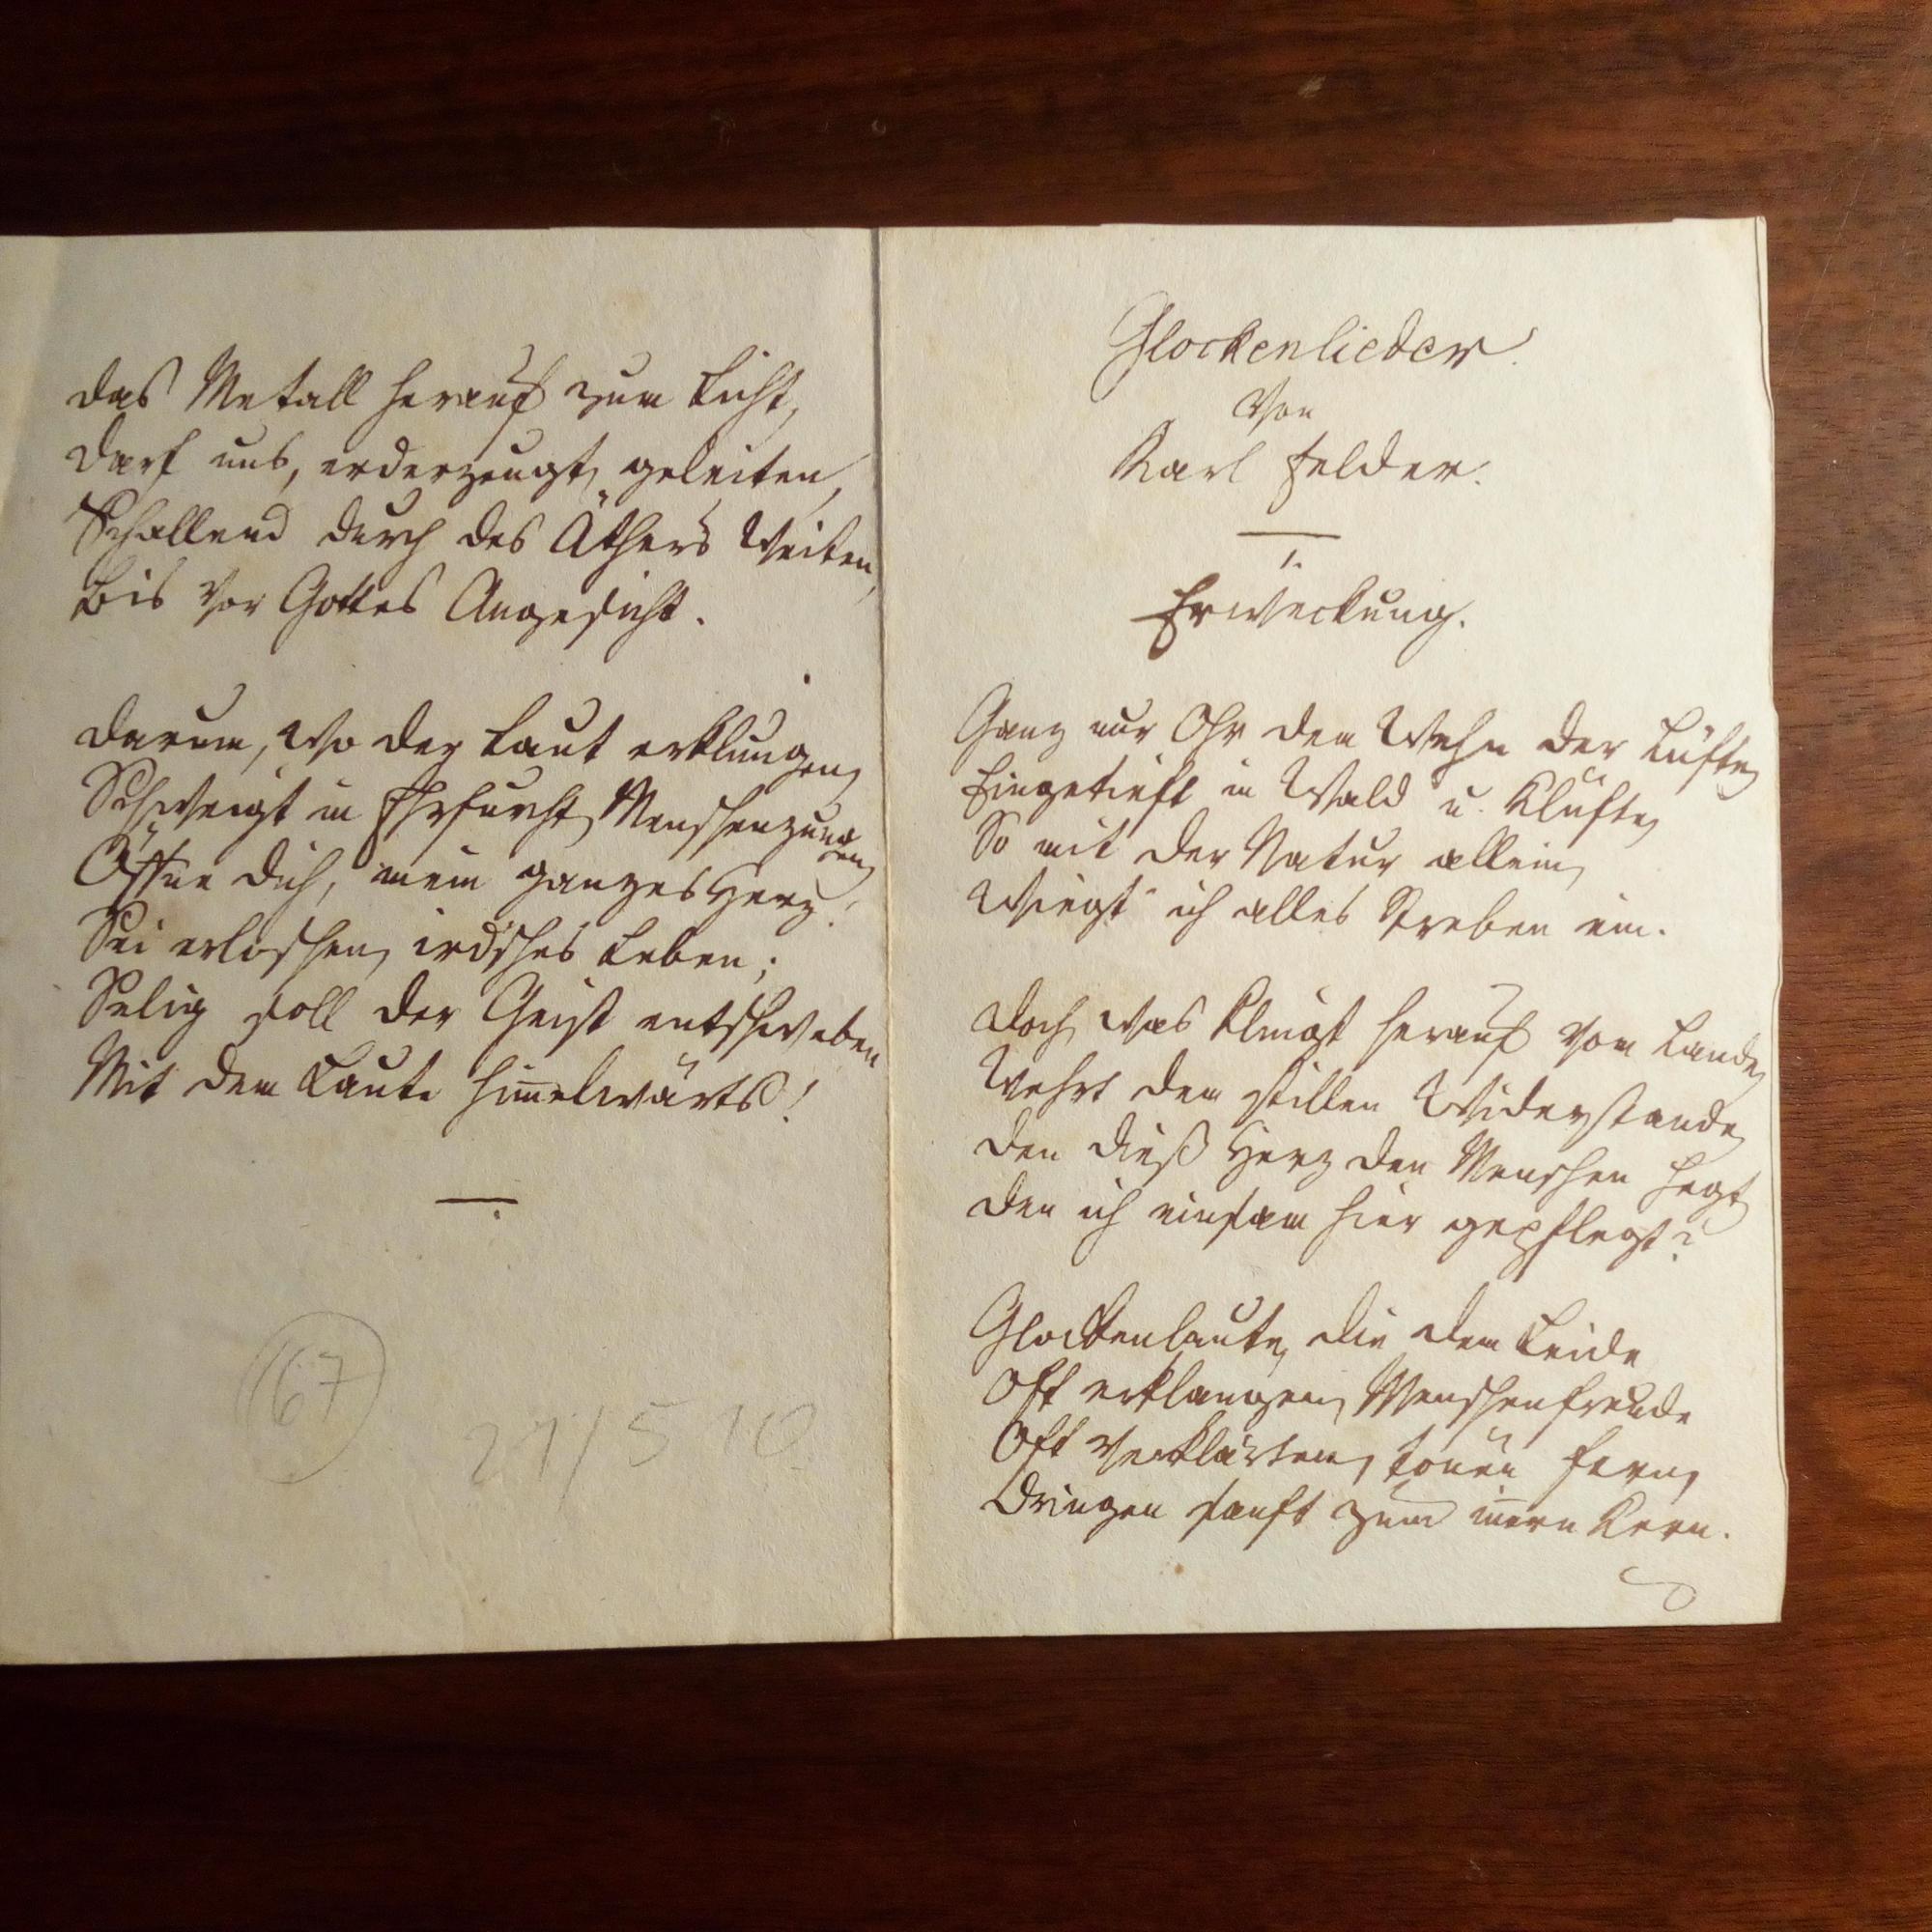 Das Metall herauf zum Licht,
Darf uns, erderzeugt, geleiten,
Schallend durch des Äthers Weiten,
Bis vor Gottes Angesicht.
Darum, wo der Laut erklungen,
Schweigt in Ehrfurcht, Menschenzungen,
Öffne dich, mein ganzes Herz!
Sei erloschen, ird'sches Leben;
Selig soll der Geist entschweben
Mit dem Laute him̅elwärts!
67
21/5 10
Glockenlieder.
Von
Karl Felder.
1.
Erweckung.
Ganz nur Ohr dem Wehn der Lüfte,
Eingetieft in Wald u. Klüfte,
So mit der Natur allein,
Wiegt' ich alles Streben ein.
Doch was klingt herauf vom Lande,
Wehrt dem stillen Widerstande,
Den dieß Herz den Menschen hegt,
Den ich einsam hier gepflegt?
Glockenlaute, die dem Leide
Oft erklangen, Menschenfreude
Oft verklärten, tönen fern,
Dringen sanft zum in̅ern Kern.